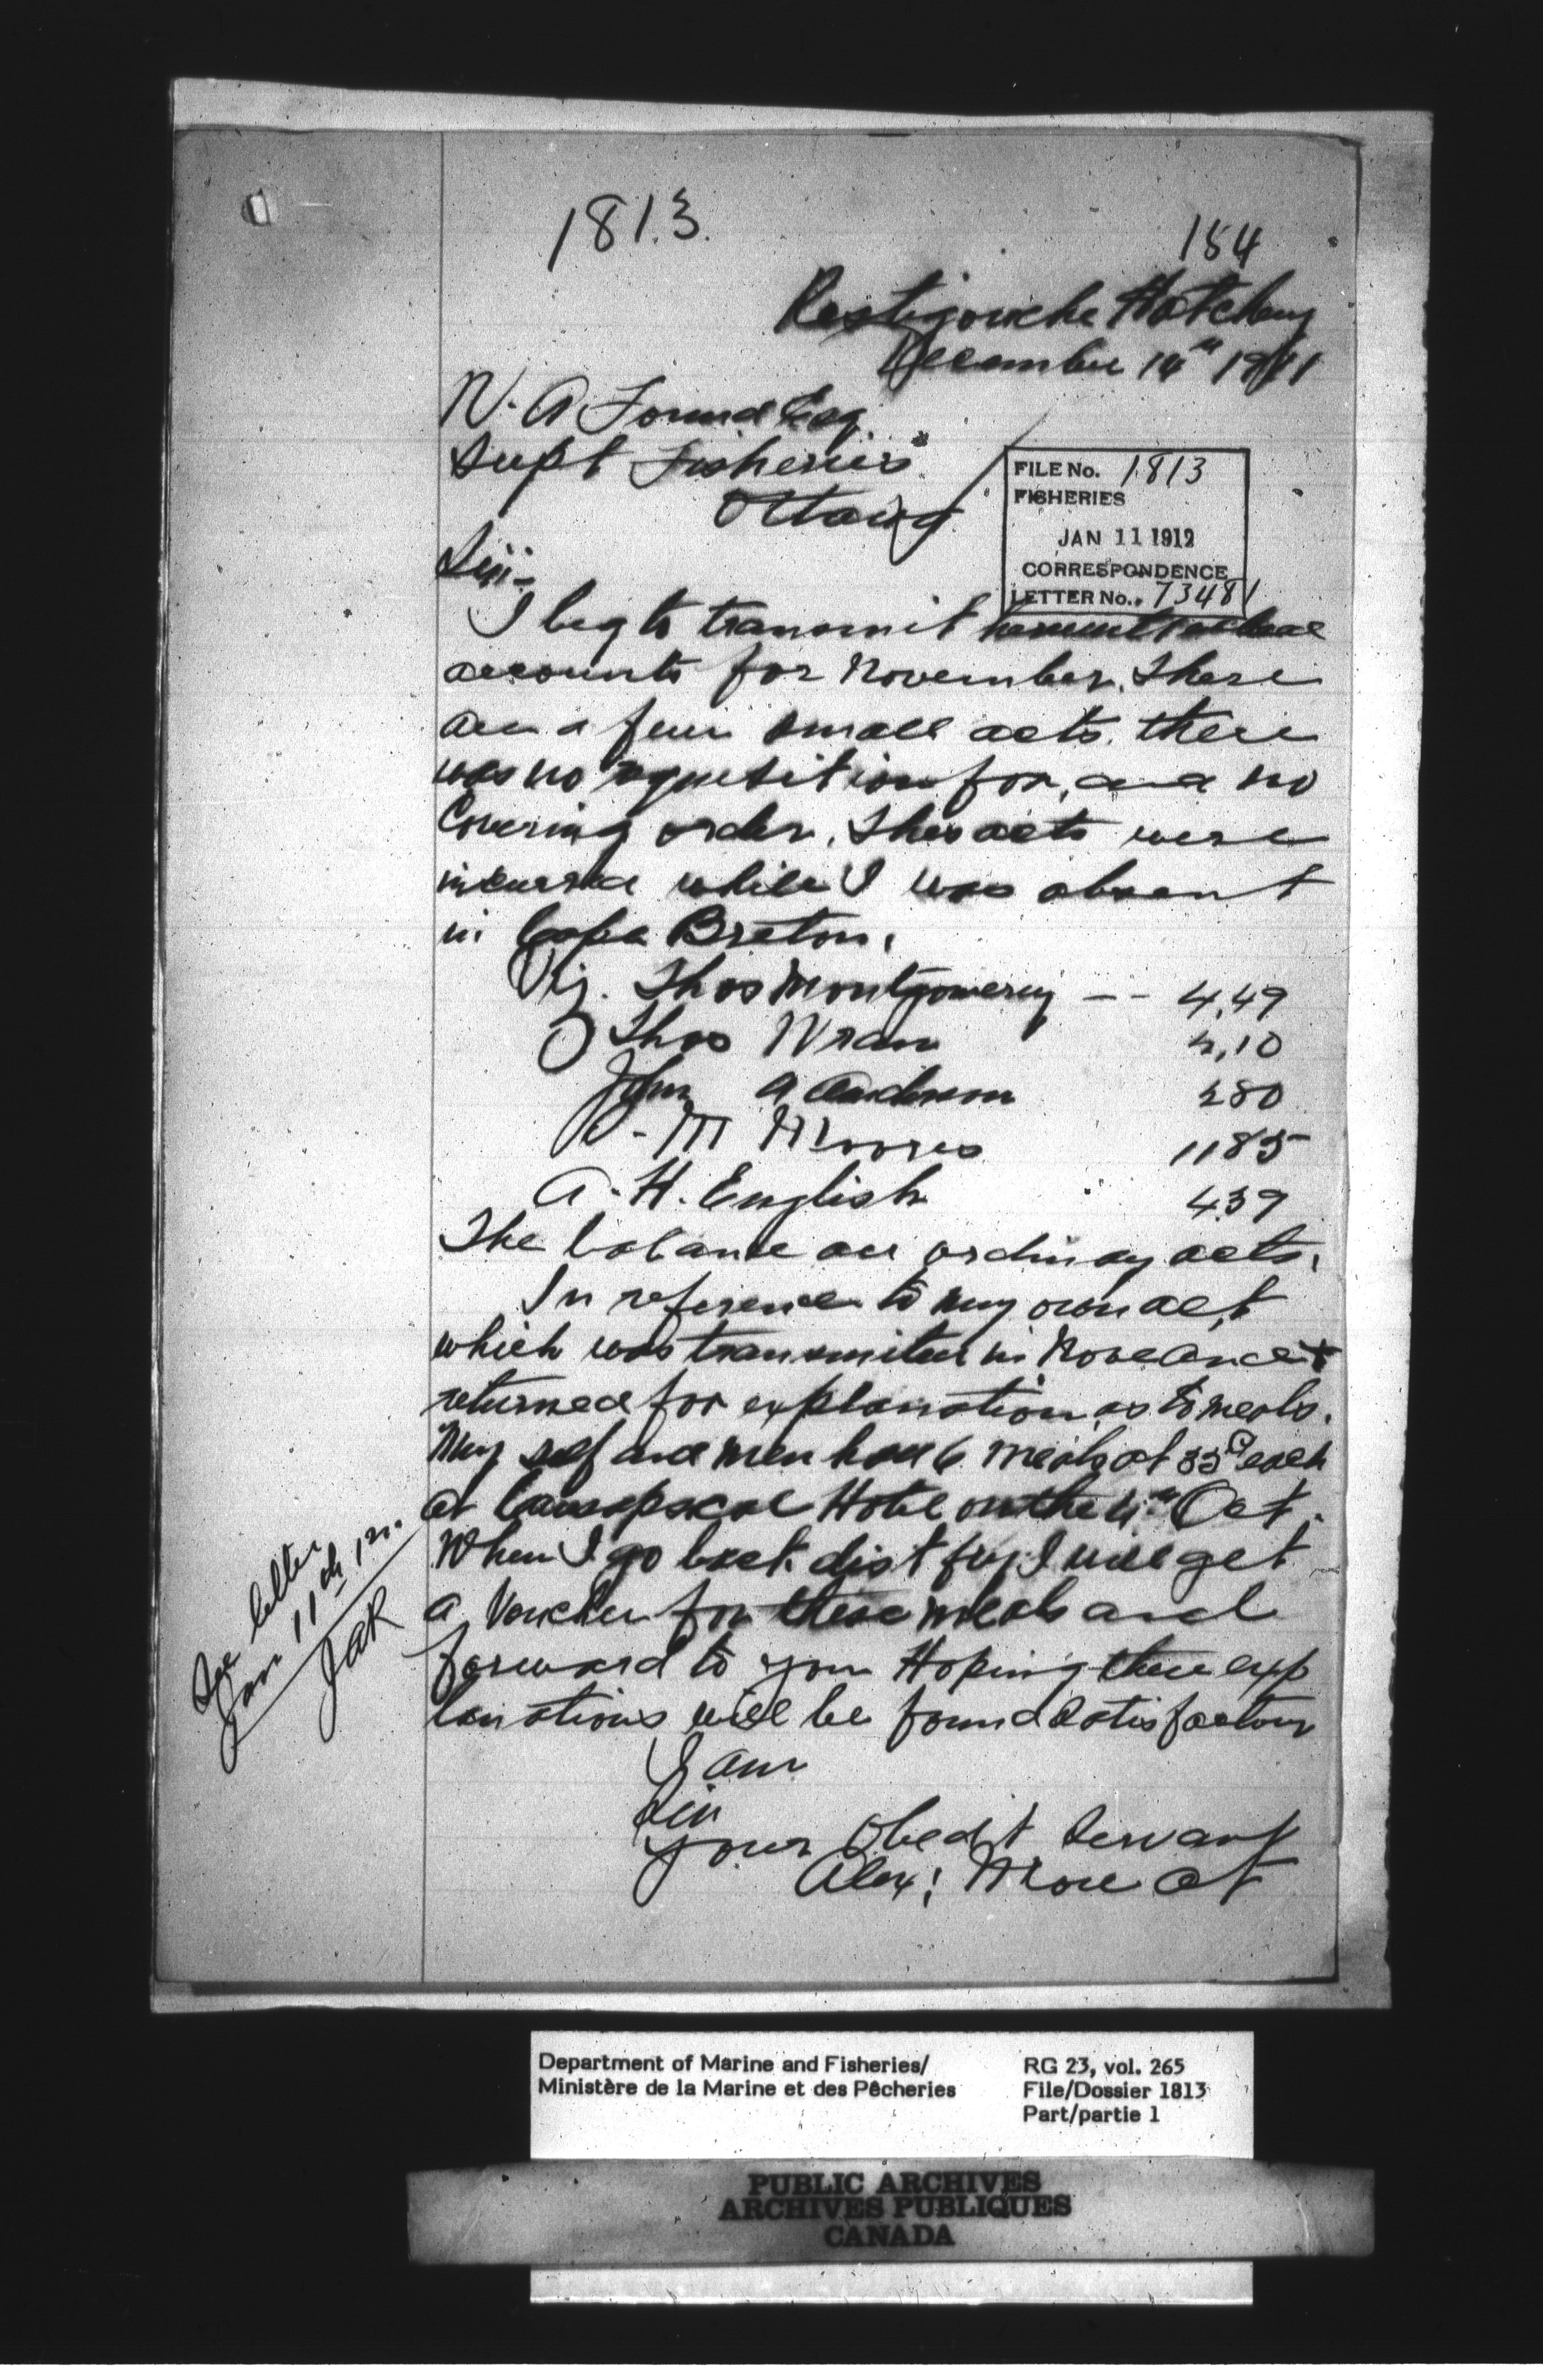 1813.
184
Restigouche Hatchery
December 14th 1911
W. A Found Esq.
Supt Fisheries
Ottawa
FILE No. 1813
FISHERIES
JAN 11 1912
CORRESPONDENCE
LETTER No. 73481
Sir-
I beg to transmit herewith
accounts for November. There
are a few small acts. there
was no requisition for, and no
Covering order. Thes acts were
incurred while I was absent
in Cape Breton.
Viz. Thos Montgomery -- 4.49
Thos Wran 2,10
John A Anderson 280
P - M Moores 1185
A. H. English 439
The balance are ordinary acts.
In reference to my own act
which was transmited in Nov and
returned for explanation as to meals.
My self and men had 6 meals at 35c each
at Causapscal Hotel on the 4th Oct.
When I go back dist fry I will get
a Voucher for these meals and
forward to you Hoping these exp
lanations will be found satisfactory
I am
Sir
your Obedit Servant
Alex: Mowat
See letter
Jan. 11th 12.
JAR
Department of Marine and Fisheries/
Ministère de la Marine et des Pêcheries
RG 23, vol. 265
File/Dossier 1813
Part/partie 1
PUBLIC ARCHIVES
ARCHIVES PUBLIQUES
CANADA